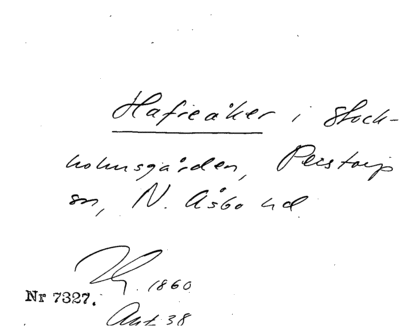 Hafreåker i Stock-
holmsgården, Perstorp
sn, N. Åsbo hd
1860
Nr 7327.
Ant 38